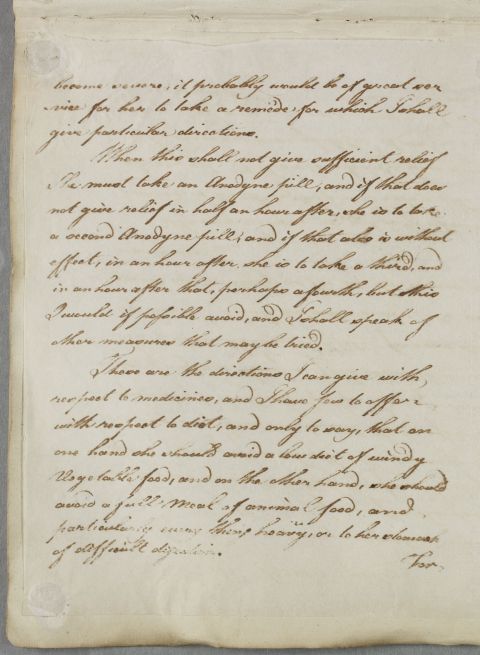 become severe, it probably would be of great ser
vice for her to take a remede, for which I shall
give particular directions.
When this shall not give sufficient relief
She must take an Anodyne pill, and if that does
not give relief in half an hour after, she is to take
a second Anodyne pill; and if that also is without
effect, in an hour after, she is to take a third, and
in an hour after that, perhaps a fourth, but this
I would if possible avoid, and I shall speak of
other measures that may be tried.
These are the directions I can give with
respect to medicines, and I have few to offer
with respect to diet, and only to say, that on
one hand she should avoid a low diet of windy
Vegetable food, and on the other hand, she should
avoid a full Meal of animal food, and
particularly every thing heavy, or to her stomach
of difficult digestion.
For